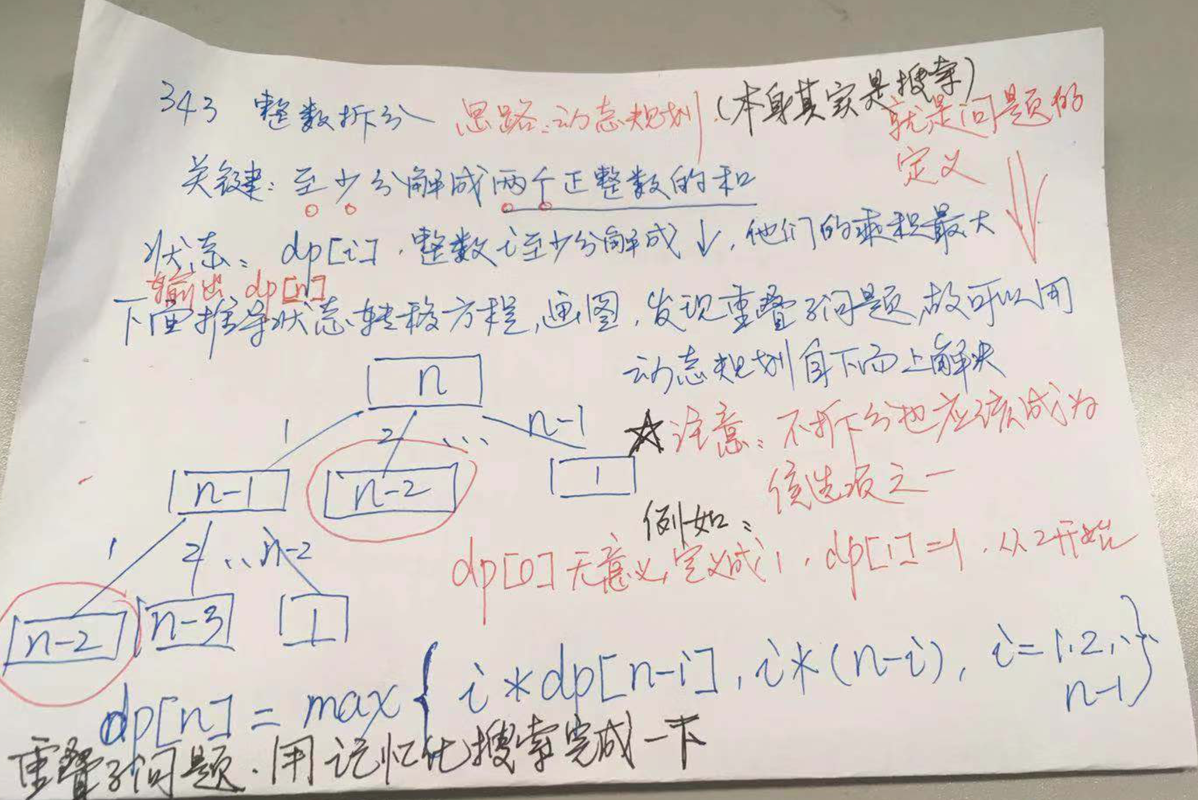 343 整数拆分 思路：动态规划.(本身其实是搜索)
就是问题的
定义
关键：至少分解成两个正整数的和
状态：dp[i]，整数i至少分解成↓，他们的乘积最大
输出 dp[n]
下面推导状态转移方程，画图，发现重叠子问题，故可以用
动态规划自下而上解决
n
1 2 ... n-1
☆注意：不拆分也应该成为
候选项之一
n-1 n-2 1
例如：
1 2 ... n-2
dp[0]无意义，定义成1，dp[1]=1，从2开始
n-2 n-3 1
dp[n] = max { i * dp[n-i], i * (n-i), i=1,2,...
n-1}
重叠子问题．用记忆化搜索完成一下